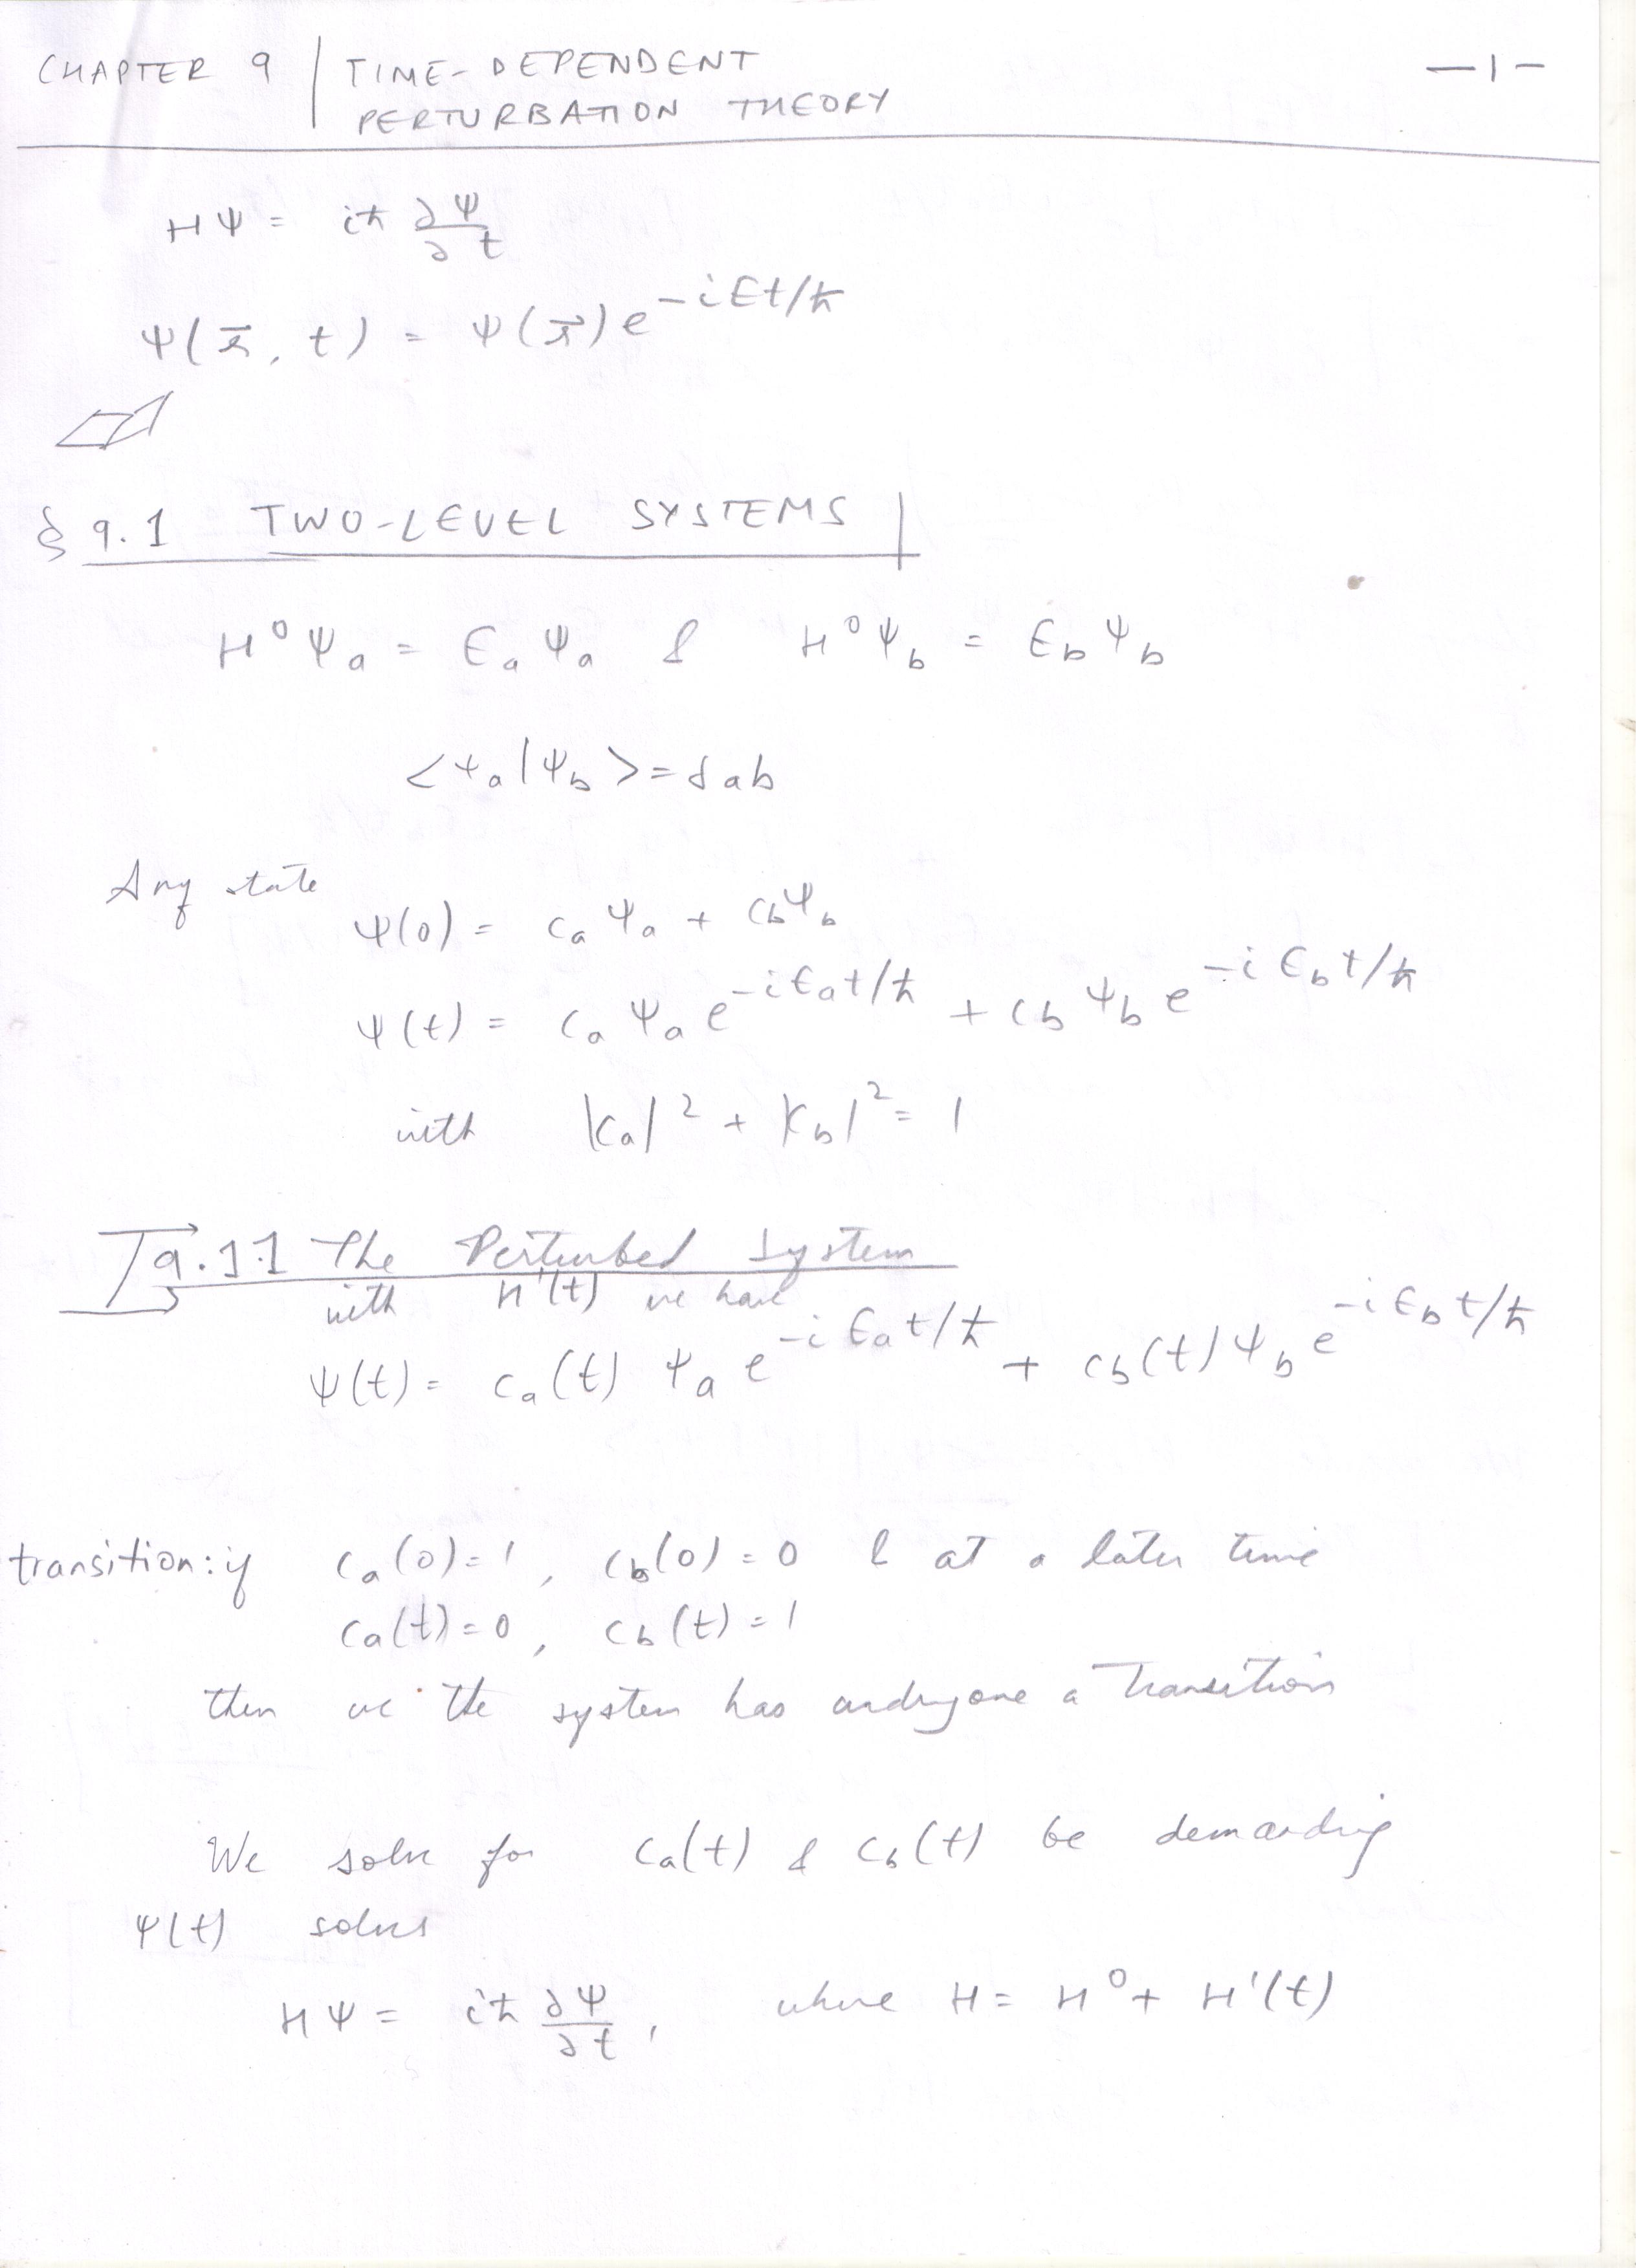 CHAPTER 9 | TIME-DEPENDENT —1—
PERTURBATION THEORY
HΨ = iħ ∂Ψ/∂t
Ψ(r⃗, t) = ψ(r⃗) e^{-iEt/ħ}
§ 9.1 TWO-LEVEL SYSTEMS
H⁰ψ_a = E_a ψ_a & H⁰ψ_b = E_b ψ_b
<ψ_a|ψ_b> = δ_ab
Any state
Ψ(0) = c_a ψ_a + c_b ψ_b
Ψ(t) = c_a ψ_a e^{-iE_a t/ħ} + c_b ψ_b e^{-iE_b t/ħ}
with |c_a|² + |c_b|² = 1
9.1.1 The Perturbed System
with H'(t) we have
Ψ(t) = c_a(t) ψ_a e^{-iE_a t/ħ} + c_b(t) ψ_b e^{-iE_b t/ħ}
transition: if c_a(0) = 1, c_b(0) = 0 & at a later time
c_a(t) = 0, c_b(t) = 1
then the system has undergone a transition
We solve for c_a(t) & c_b(t) be demanding
Ψ(t) solves
HΨ = iħ ∂Ψ/∂t, where H = H⁰ + H'(t)